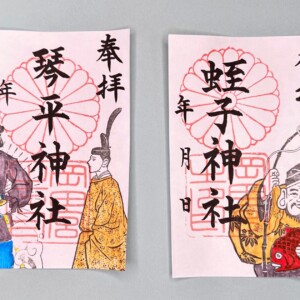 奉拝
琴平神社
年
蛭子神社
年月日